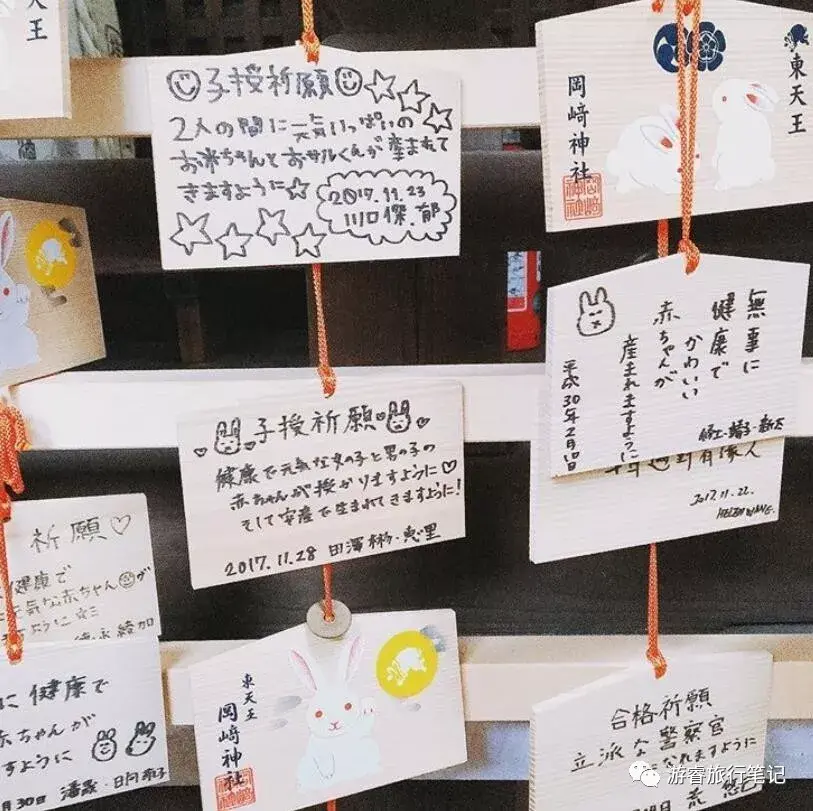 天王
子授祈願
2人の間に元気いっぱいの
お米ちゃんとおサルくんが産まれて
きますように
2017.11.23
川口 傑.郁
東天王
岡﨑神社
無事に
健康で
かわいい
赤ちゃんが
産まれますように
平成30年2月10日
2017.11.22.
子授祈願
健康で元気な女の子と男の子の
赤ちゃんが授かりますように
そして安産で生まれてきますように!
2017.11.28 田澤 彬・恵里
祈願
健康で
元気な赤ちゃん が
ように
に 健康で
赤ちゃんが
すように
月30日
東天王
岡﨑神社
合格祈願
立派な警察官
になれますように
游睿旅行笔记